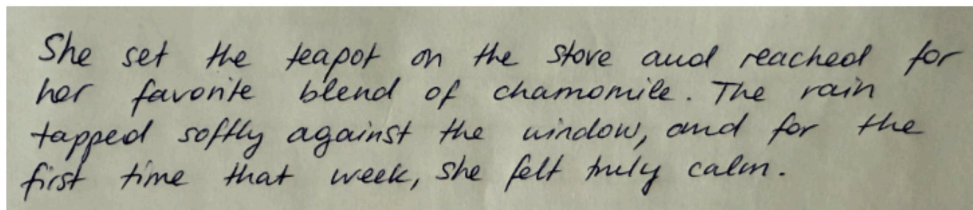 She set the teapot on the stove and reached for
her favorite blend of chamomile. The rain
tapped softly against the window, and for the
first time that week, she felt truly calm.